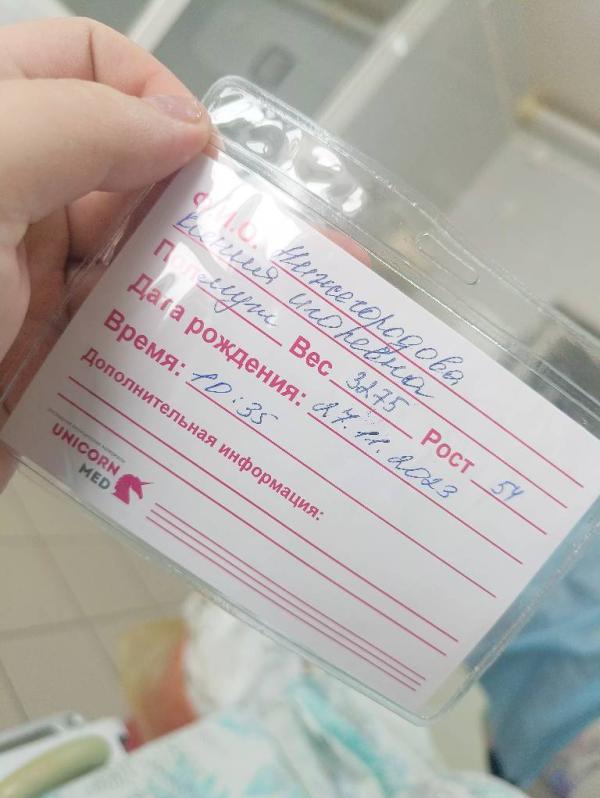 Ф.И.О. Нижегородова
Ксения Игоревна
Пол муж Вес 3275 Рост 54
Дата рождения: 27.11.2023
Время: 10:35
Дополнительная информация:
UNICORN
MED